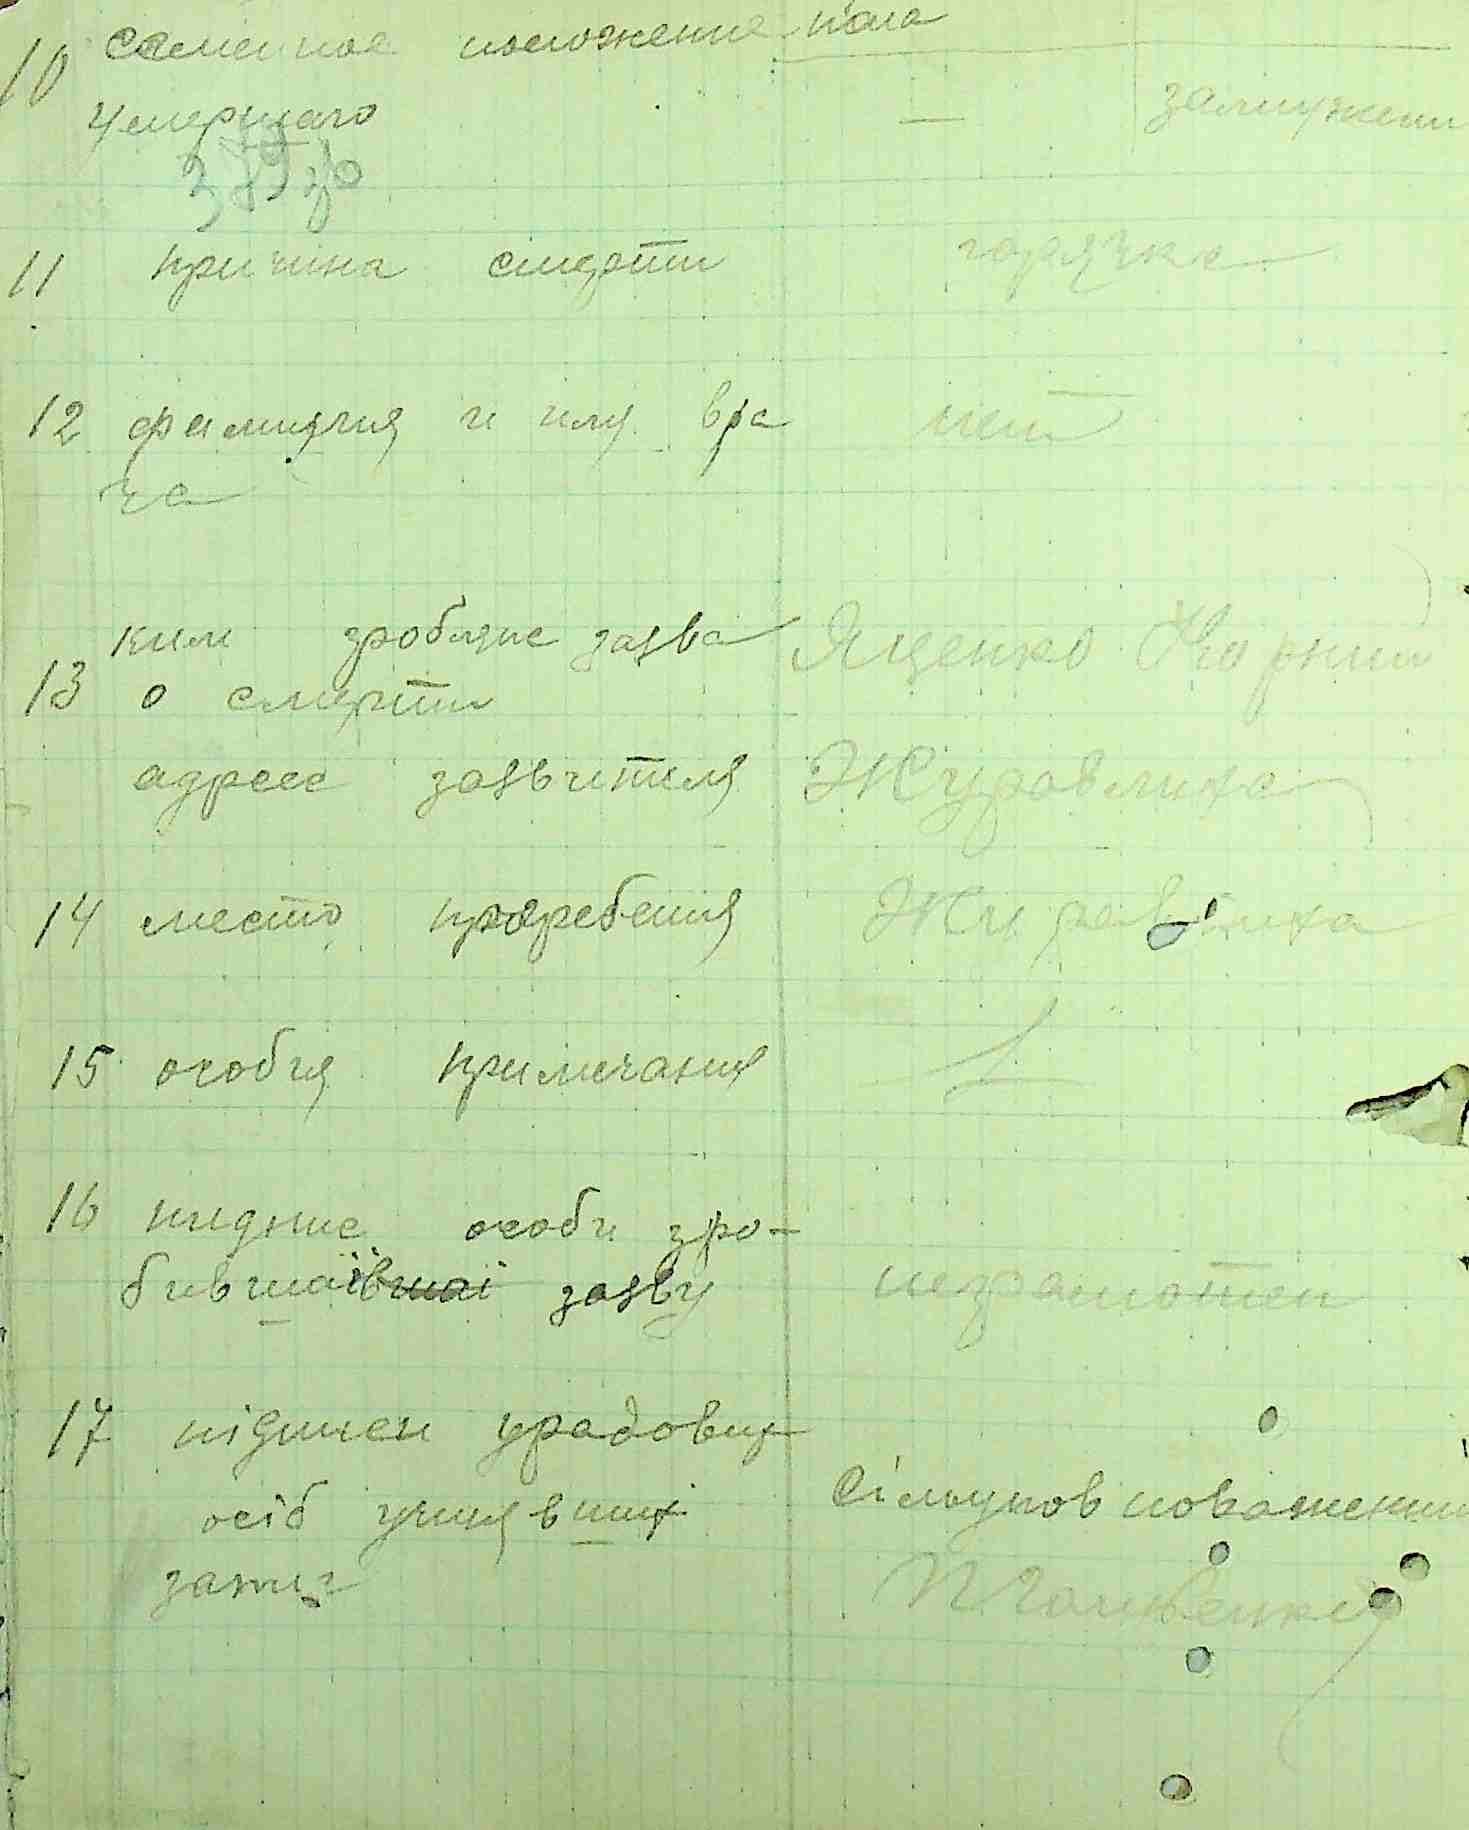 10 семейное положение пола
умершаго — замужем
11 причина смерти горячка
12 фамилия и имя вра нет
ча
ким зроблене заява Ященко Корний
13 о смерти
адресс заявителя Журавлиха
14 место погребения Журавлиха
15 особия примечания
16 підпис особи зро-
бившоі заяву неграмотен
17 підписи урядових
осіб учинявших Сільуповноважений
запис